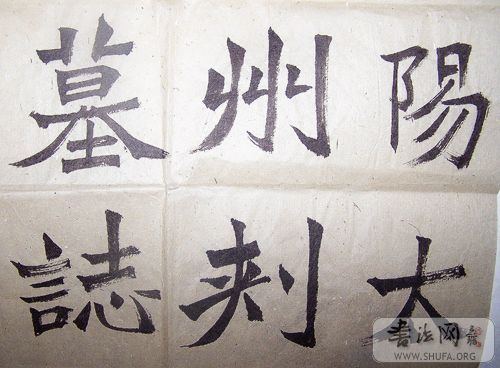 陽太
州刺
墓誌
書法网
WWW.SHUFA.ORG